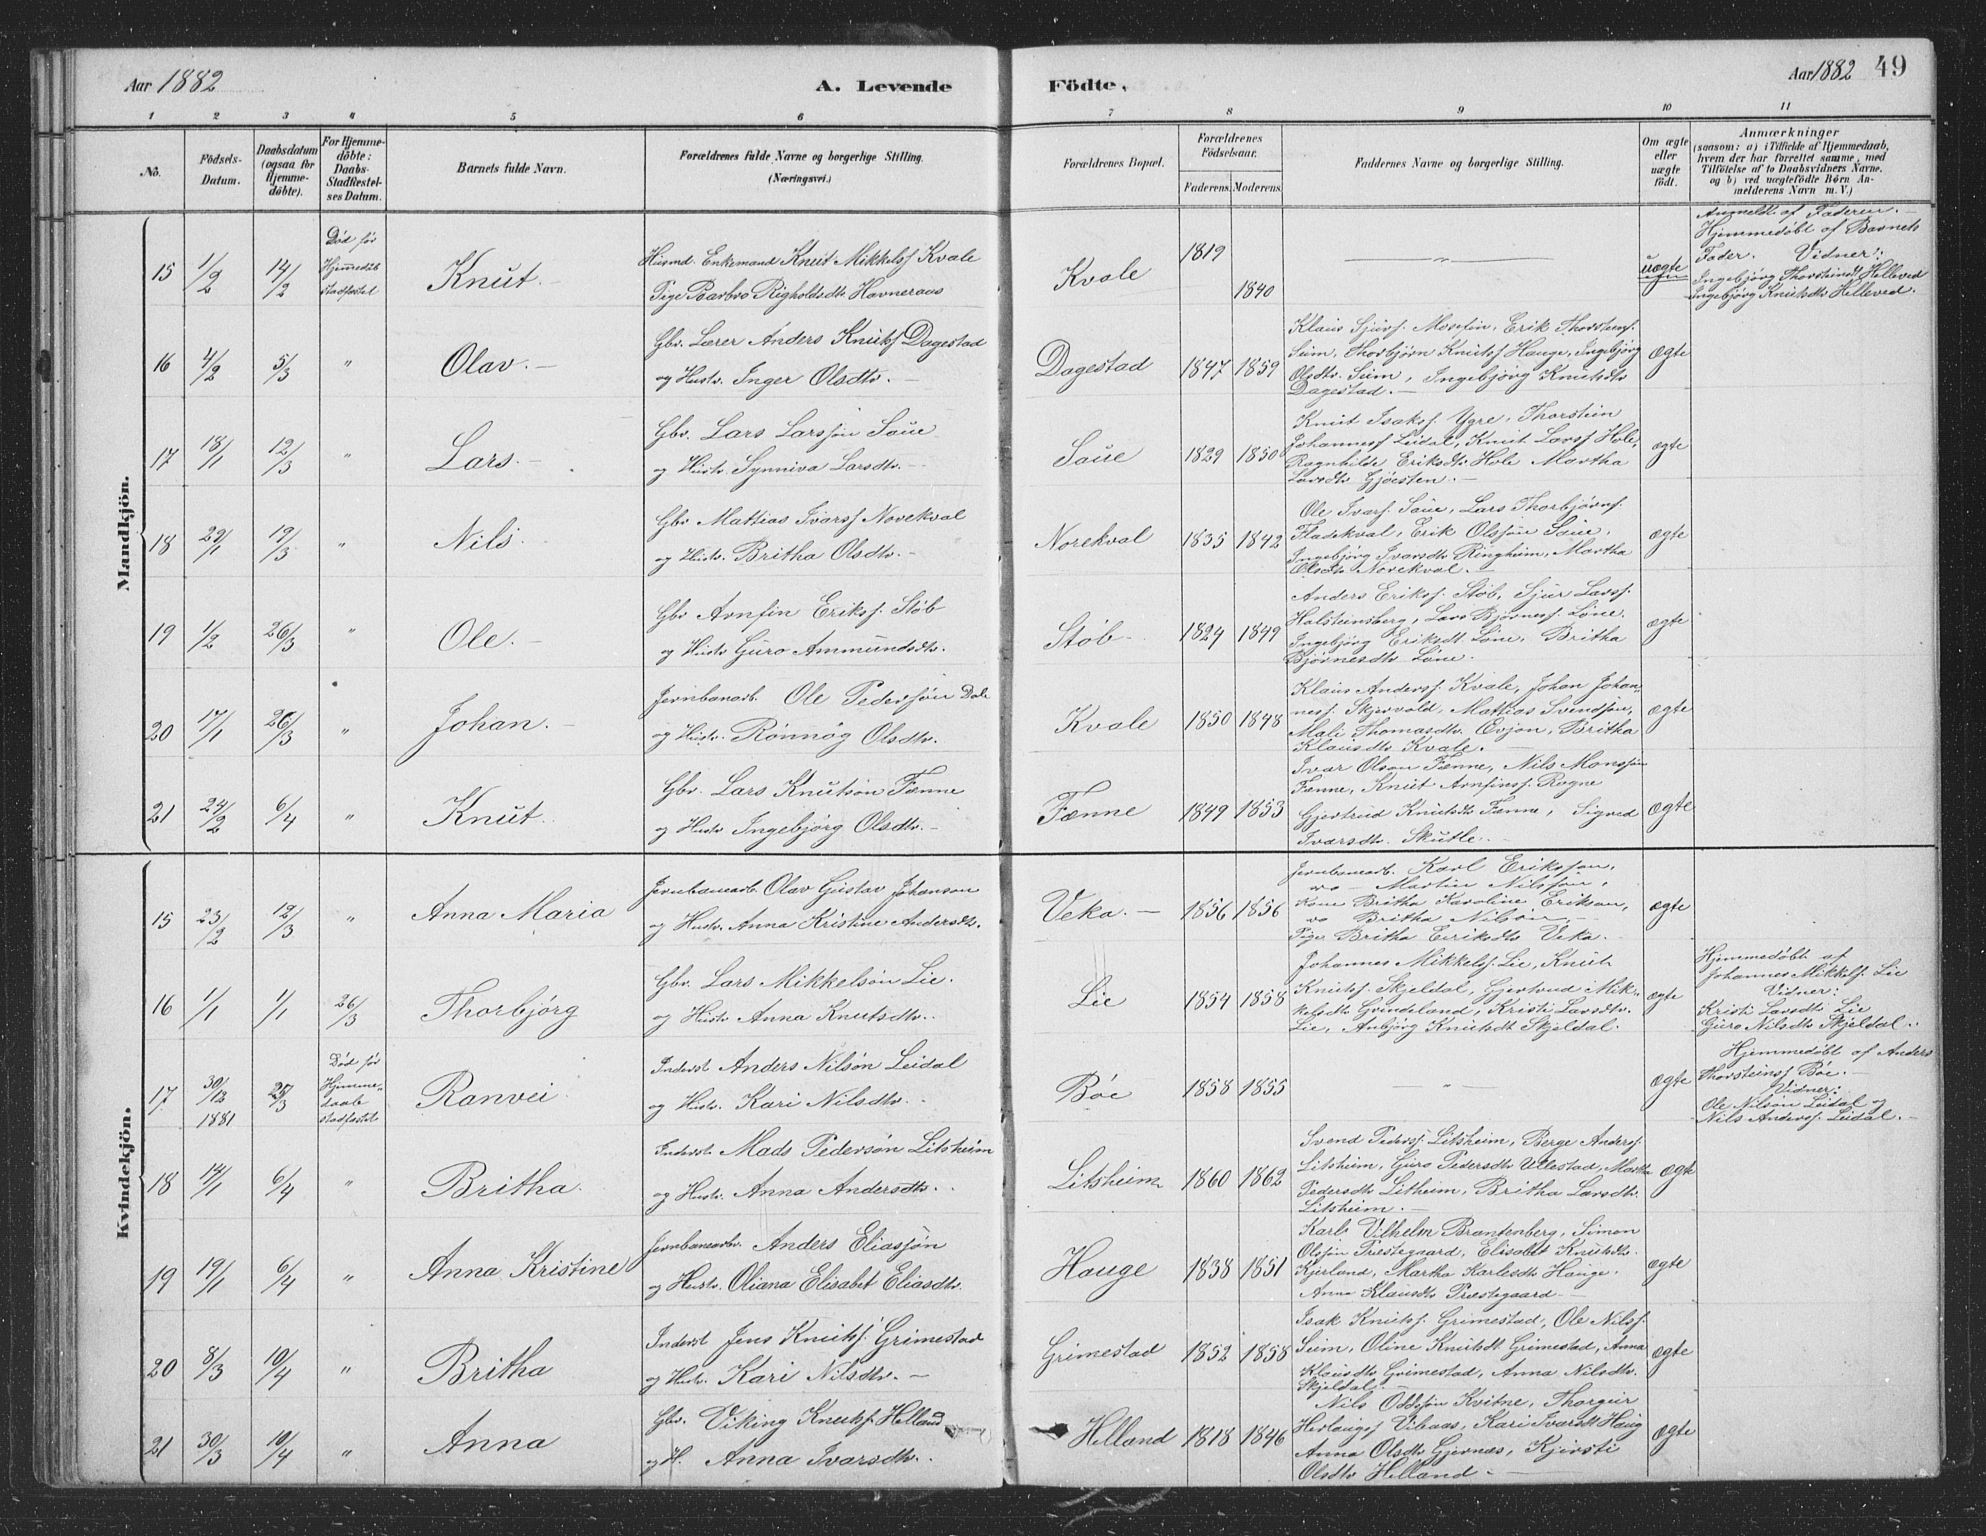 Aar 1882
A. Levende Födte.
Aar 1882 49
1 2 3 4 5 6 7 8 9 10 11
No.
Födsels-Datum.
Daabsdatum (ogsaa for Hjemmedöbte).
For Hjemmedöbte: Daabs-Stadfæstelses Datum.
Barnets fulde Navn.
Forældrenes fulde Navne og borgerlige Stilling.
(Næringsvei.)
Forældrenes Bopæl.
Forældrenes Födselsaar.
Faderens. Moderens.
Faddernes Navne og borgerlige Stilling.
Om ægte eller uægte födt.
Anmærkninger
(saasom: a) i Tilfælde af Hjemmedaab, hvem der har forrettet samme, med Tilföielse af to Daabsvidners Navne, og b) ved uægtefödte Börn Anmelderens Navn m. V.)
Mandkjön.
15 1/2 14/2 Död før Hjemmedåb stadfæstet
Knut.
Husmd. Enkemand Knut Mikkelss Kvale
Pige Barbro Righoldsdtr Havneraas
Kvale 1819 1840
uægte
Anmeldt af Faderen.
Hjemmedøbt af Barnets
Fader. Vidner:
Ingebjörg Thorsteinsdt Helleved
Ingebjörg Knutsdtr Helleved.
16 4/2 5/3 "
Olav.
Gbr. Lærer Anders Knuts. Dagestad
og Hustr. Inger Olsdtr.
Dagestad 1847 1859
Klaus Sjurs. Mosefin, Erik Thorsteins.
Seim, Thorbjörn Knutss Hauge, Ingebjörg
Olsdtr. Seim, Ingebjörg Knutsdtr
Dagestad.
ægte
17 18/1 12/3 "
Lars.
Gbr. Lars Larssön Saue
og Hustr. Synniva Larsdtr.
Saue 1829 1850
Knut Isakss. Ygre, Thorstein
Johanness Leidal, Knut Larss Hole,
Ragnhilde Eriksdtr Hole Martha
Larsdtr Gjøesten.
ægte
18 29/1 19/3 "
Nils.
Gbr Mattias Ivarss Norekval
og Hustr. Britha Olsdtr.
Norekval 1835 1842
Ole Ivars. Saue, Lars Thorbjörns.
Fladekval, Erik Olssön Saue,
Ingebjörg Ivarsdtr Ringheim, Martha
Olsdtr Norekval.
ægte
19 1/2 26/3 "
Ole.
Gbr Arnfin Eriks. Støb
og Hustr Guro Ammundsdtr.
Støb 1824 1849
Anders Eriks. Støb, Sjur Larss.
Halsteinsberg, Lars Bjørness Lône,
Ingebjörg Eriksdt Lône, Britha
Bjørnesdtr Lône.
ægte
20 17/1 26/3 "
Johan.
Jernbanearb. Ole Pedersön Dale
og Hustr. Rönnög Olsdtr.
Kvale 1850 1848
Klaus Anderss. Kvale, Johan Johan-
ness. Skjervold, Mattias Svendsön,
Mali Thomasdtr. Evjon, Britha
Klausdtr Kvale.
ægte
21 24/2 6/4 "
Knut.
Gbr. Lars Knutsön Fænne
og Hustr Ingebjörg Olsdtr.
Fænne 1849 1853
Ivar Olson Fænne, Nils Monssön
Fænne, Knut Arnfinss. Rogne
Gjertrud Knutsdtr Fænne, Sigved
Ivarsdtr. Skutle.
ægte
Kvindekjön.
15 23/2 12/3 "
Anna Maria
Jernbanearb. Olav Gustav Johanson
og Hustr. Anna Kristine Andersdtr.
Veka. 1856 1856
Jernbanearb. Karl Eriksson,
Martin Nilssön,
Kone Britha Karoline Erikson,
Britha Nilsön,
Pige Britha Eriksdtr Veka.
ægte
16 1/1 1/1 26/3
Thorbjörg
Gbr. Lars Mikkelsön Lie.
og Hustr Anna Knutsdtr.
Lie 1854 1858
Johannes Mikkelss. Lie, Knut
Knutss. Skjeldal, Gjertrud Mik-
kelsdtr Grindeland, Kristi Larsdtr.
Lie, Anbjörg Knutsdt Skjeldal.
ægte
Hjemmedøbt af
Johannes Mikkels. Lie
Vidner:
Kristi Larsdtr Lie
Guro Nilsdtr Skjeldal.
17 30/12 1881 25/3 Död før Hjemmedaab stadfæstet
Ranvei
Inderst Anders Nilsön Leidal
og Hustr. Kari Nilsdtr.
Böe 1858 1855
ægte
Hjemmedøbt af Anders
Thorsteinss Böe.
Vidner:
Ole Nilsön Leidal og
Nils Anderss. Leidal.
18 14/1 6/4 "
Britha.
Inderst Mads Pedersön Litsheim
og Hustr. Anna Andersdtr.
Litsheim 1860 1862
Svend Pederss. Litsheim, Berge Anderss.
Litsheim, Guro Pedersdtr Ullestad, Martha
Pedersdtr Litheim, Britha Larsdtr.
Litsheim.
ægte
19 19/1 6/4 "
Anna Kristine
Jernbanearbr. Anders Eliasjön
og Hustr. Oliana Elisabet Eliasdtr.
Hauge 1838 1851
Karl Vilhelm Brantenberg, Simon
Olssön Præstegaard, Elisabet Knutsdtr.
Kjerland, Martha Karlesdtr Hauge.
Anna Klausdtr Præstegaard.
ægte
20 8/3 10/4 "
Britha
Inderst Jens Knutss. Grimestad
og Hustr. Kari Nilsdtr.
Grimestad 1852 1858
Isak Knutss. Grimestad, Ole Nilss.
Seim, Oline Knutsdt Grimestad, Anna
Klausdtr Grimestad, Anna Nilsdtr.
Skjeldal.
ægte
21 30/3 10/4 "
Anna
Gbr. Viking Knutss. Helland
og H. Anna Ivarsdtr.
Helland 1818 1846
Nils Oddssön Kvitne, Thorgur
Herlaugss Vibaas, Kari Ivarsdt Haug
Anna Olsdtr Gjernæs, Kjersti
Olsdtr Helland.
ægte